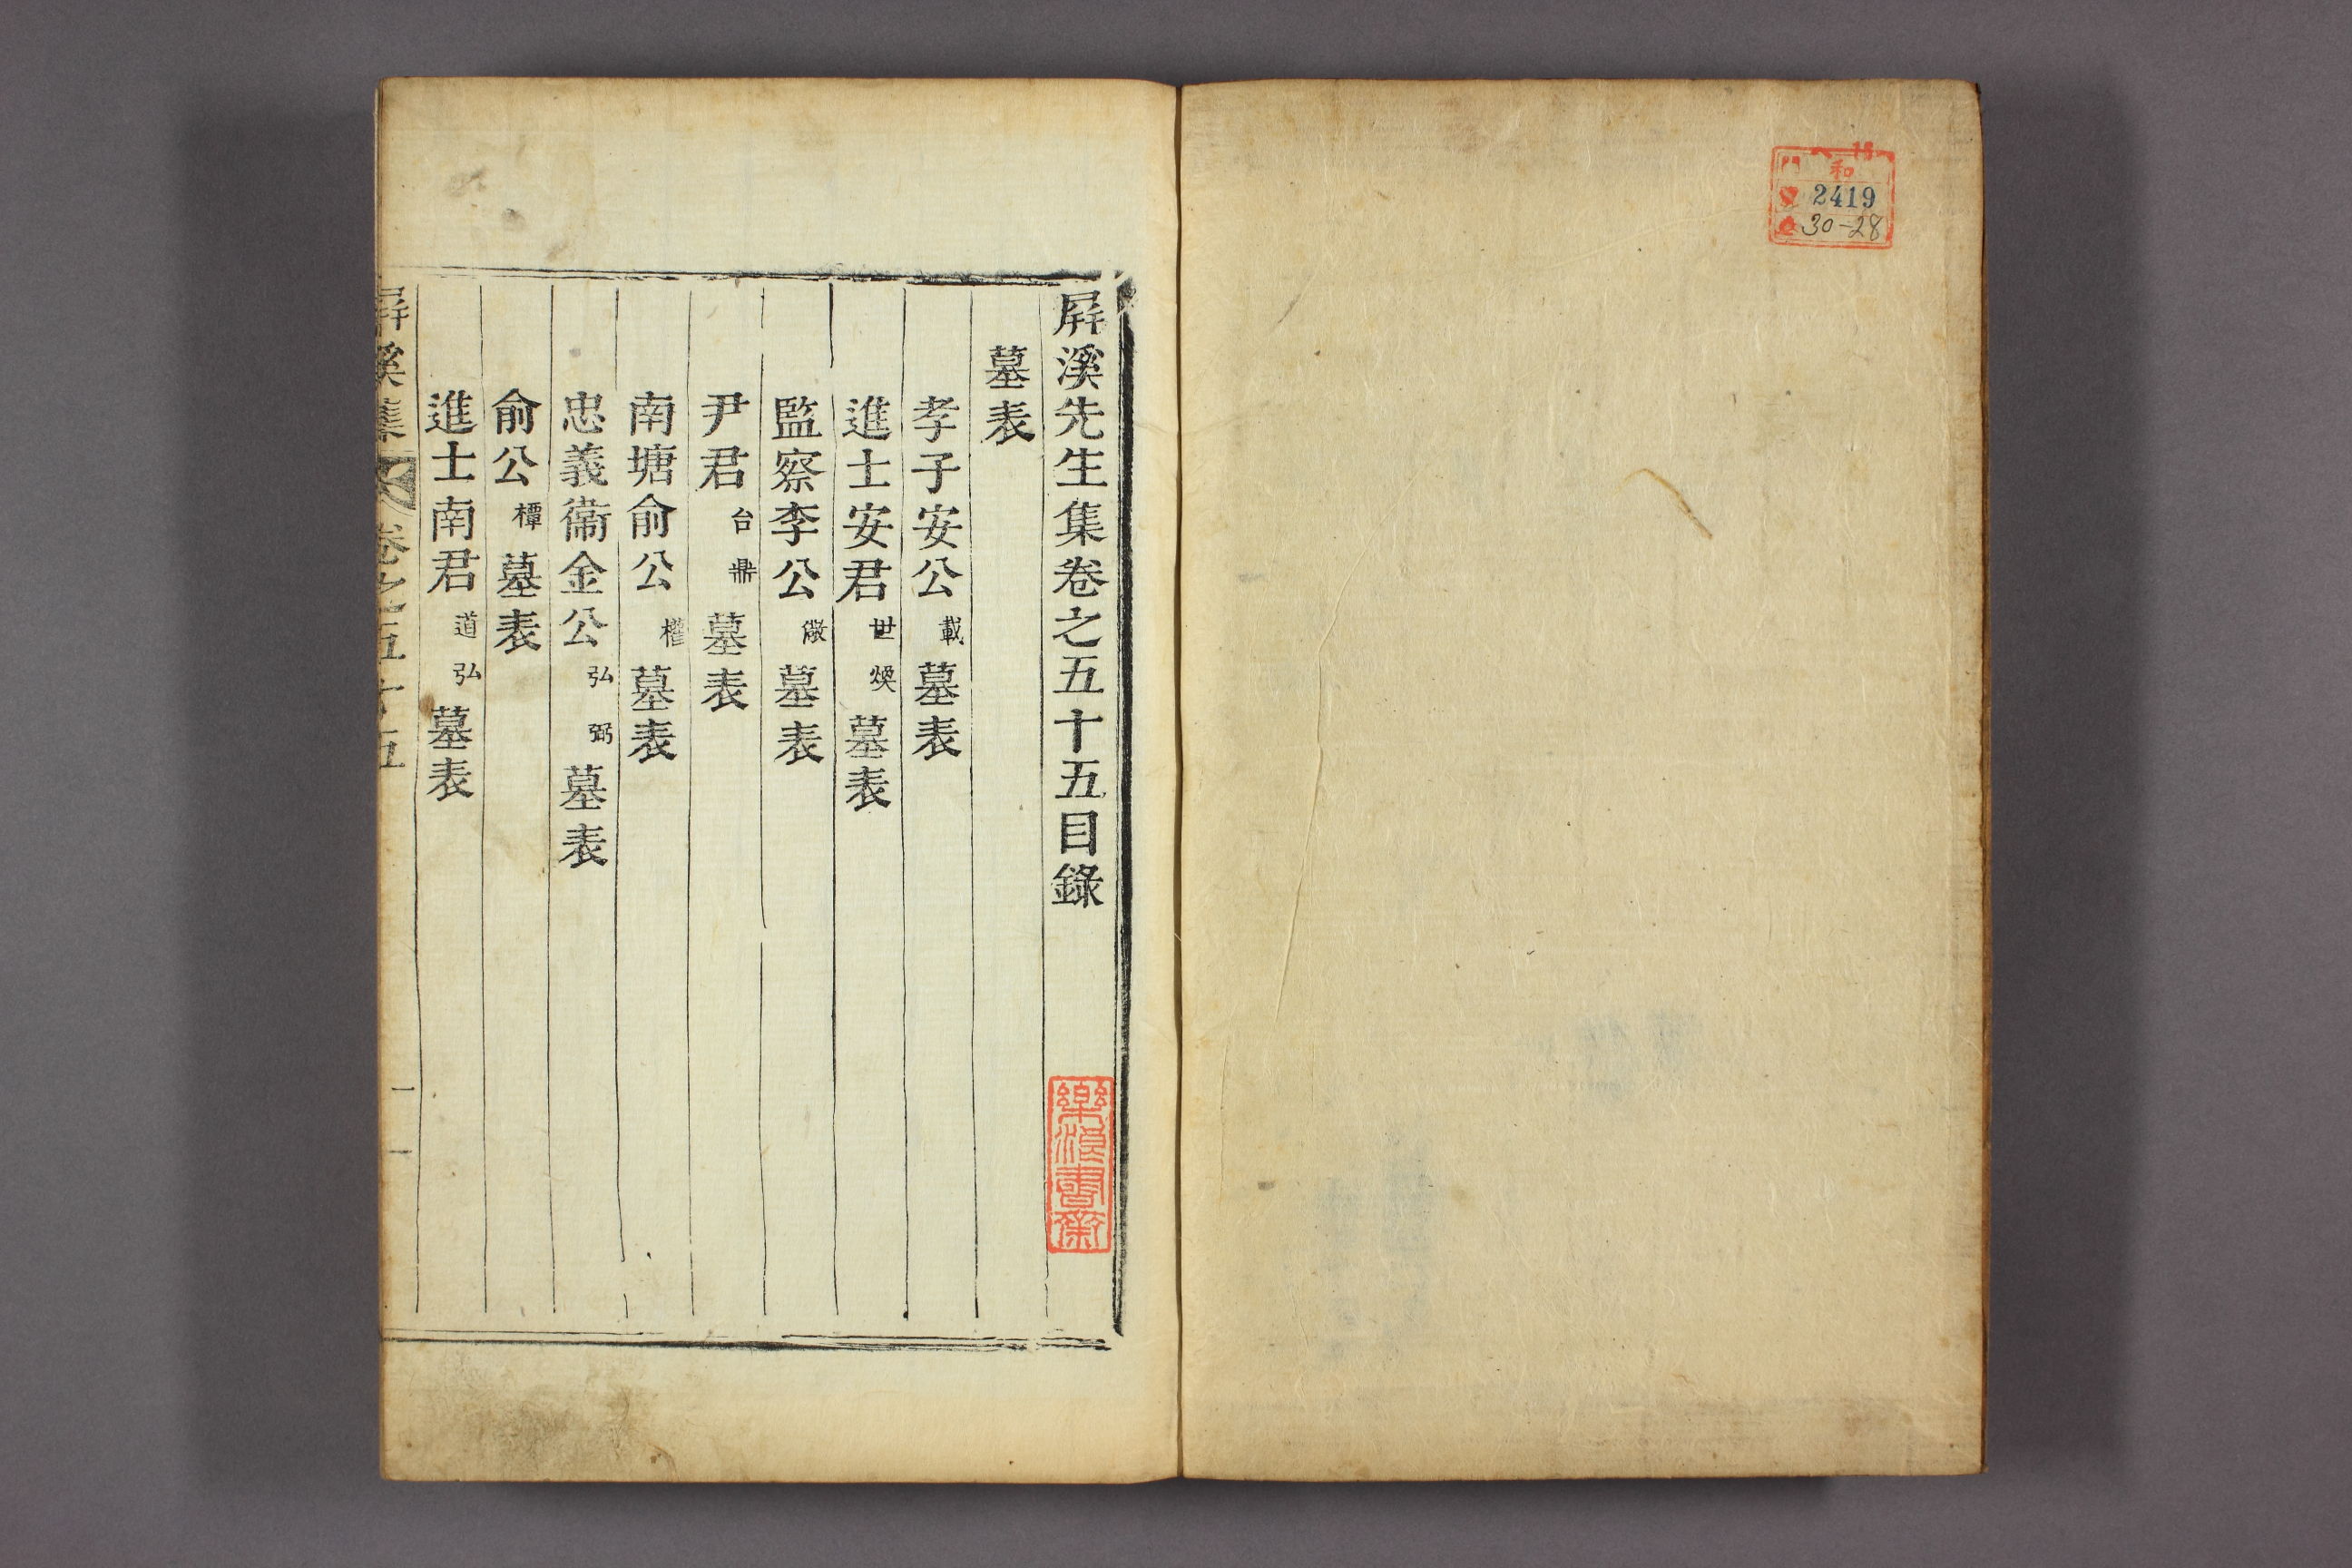 和
2419
30-28
屛溪先生集卷之五十五目錄
墓表
孝子安公載墓表
進士安君世煥墓表
監察李公徵墓表
尹君台鼎墓表
南塘俞公㩲墓表
忠義衞金公弘弼墓表
俞公橝墓表
進士南君道弘墓表
屛溪集
卷之五十五
一
樂浪書斎